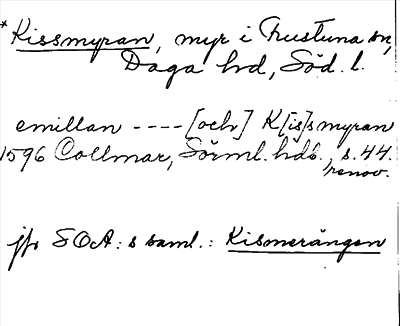 * Kissmyran, myr i Frustuna sn,
Daga hd, Söd. l.
emillan ---- [och] K[is]smyran
1596 Collmar, Sörml. hdb., s. 44.
renov.
jfr SOA:s saml.: Kismerängen